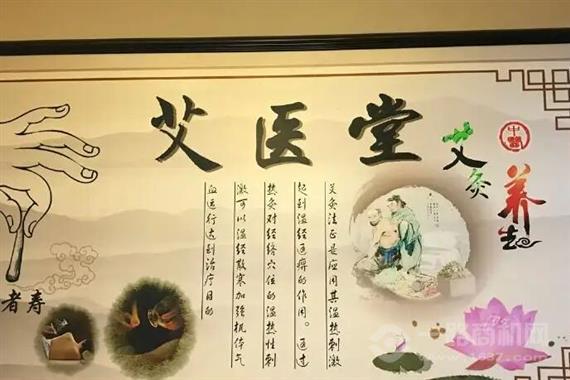 艾医堂
中醫
艾灸
养生
艾灸法正是应用其温热刺激
起到温经通痹的作用。通过
热灸对经络穴位的温热性刺
激可以温经散寒加强机体气
血运行达到治疗目的
者寿
一路商机网
1637.com